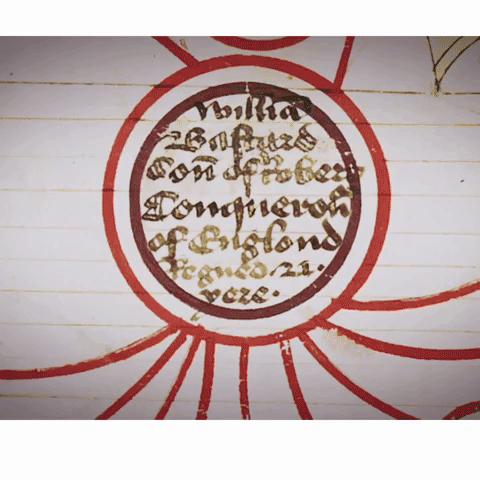 Williā
Bastard
Son̄ of Robert
Conquerour̄
of Englond
Regned 21
yere